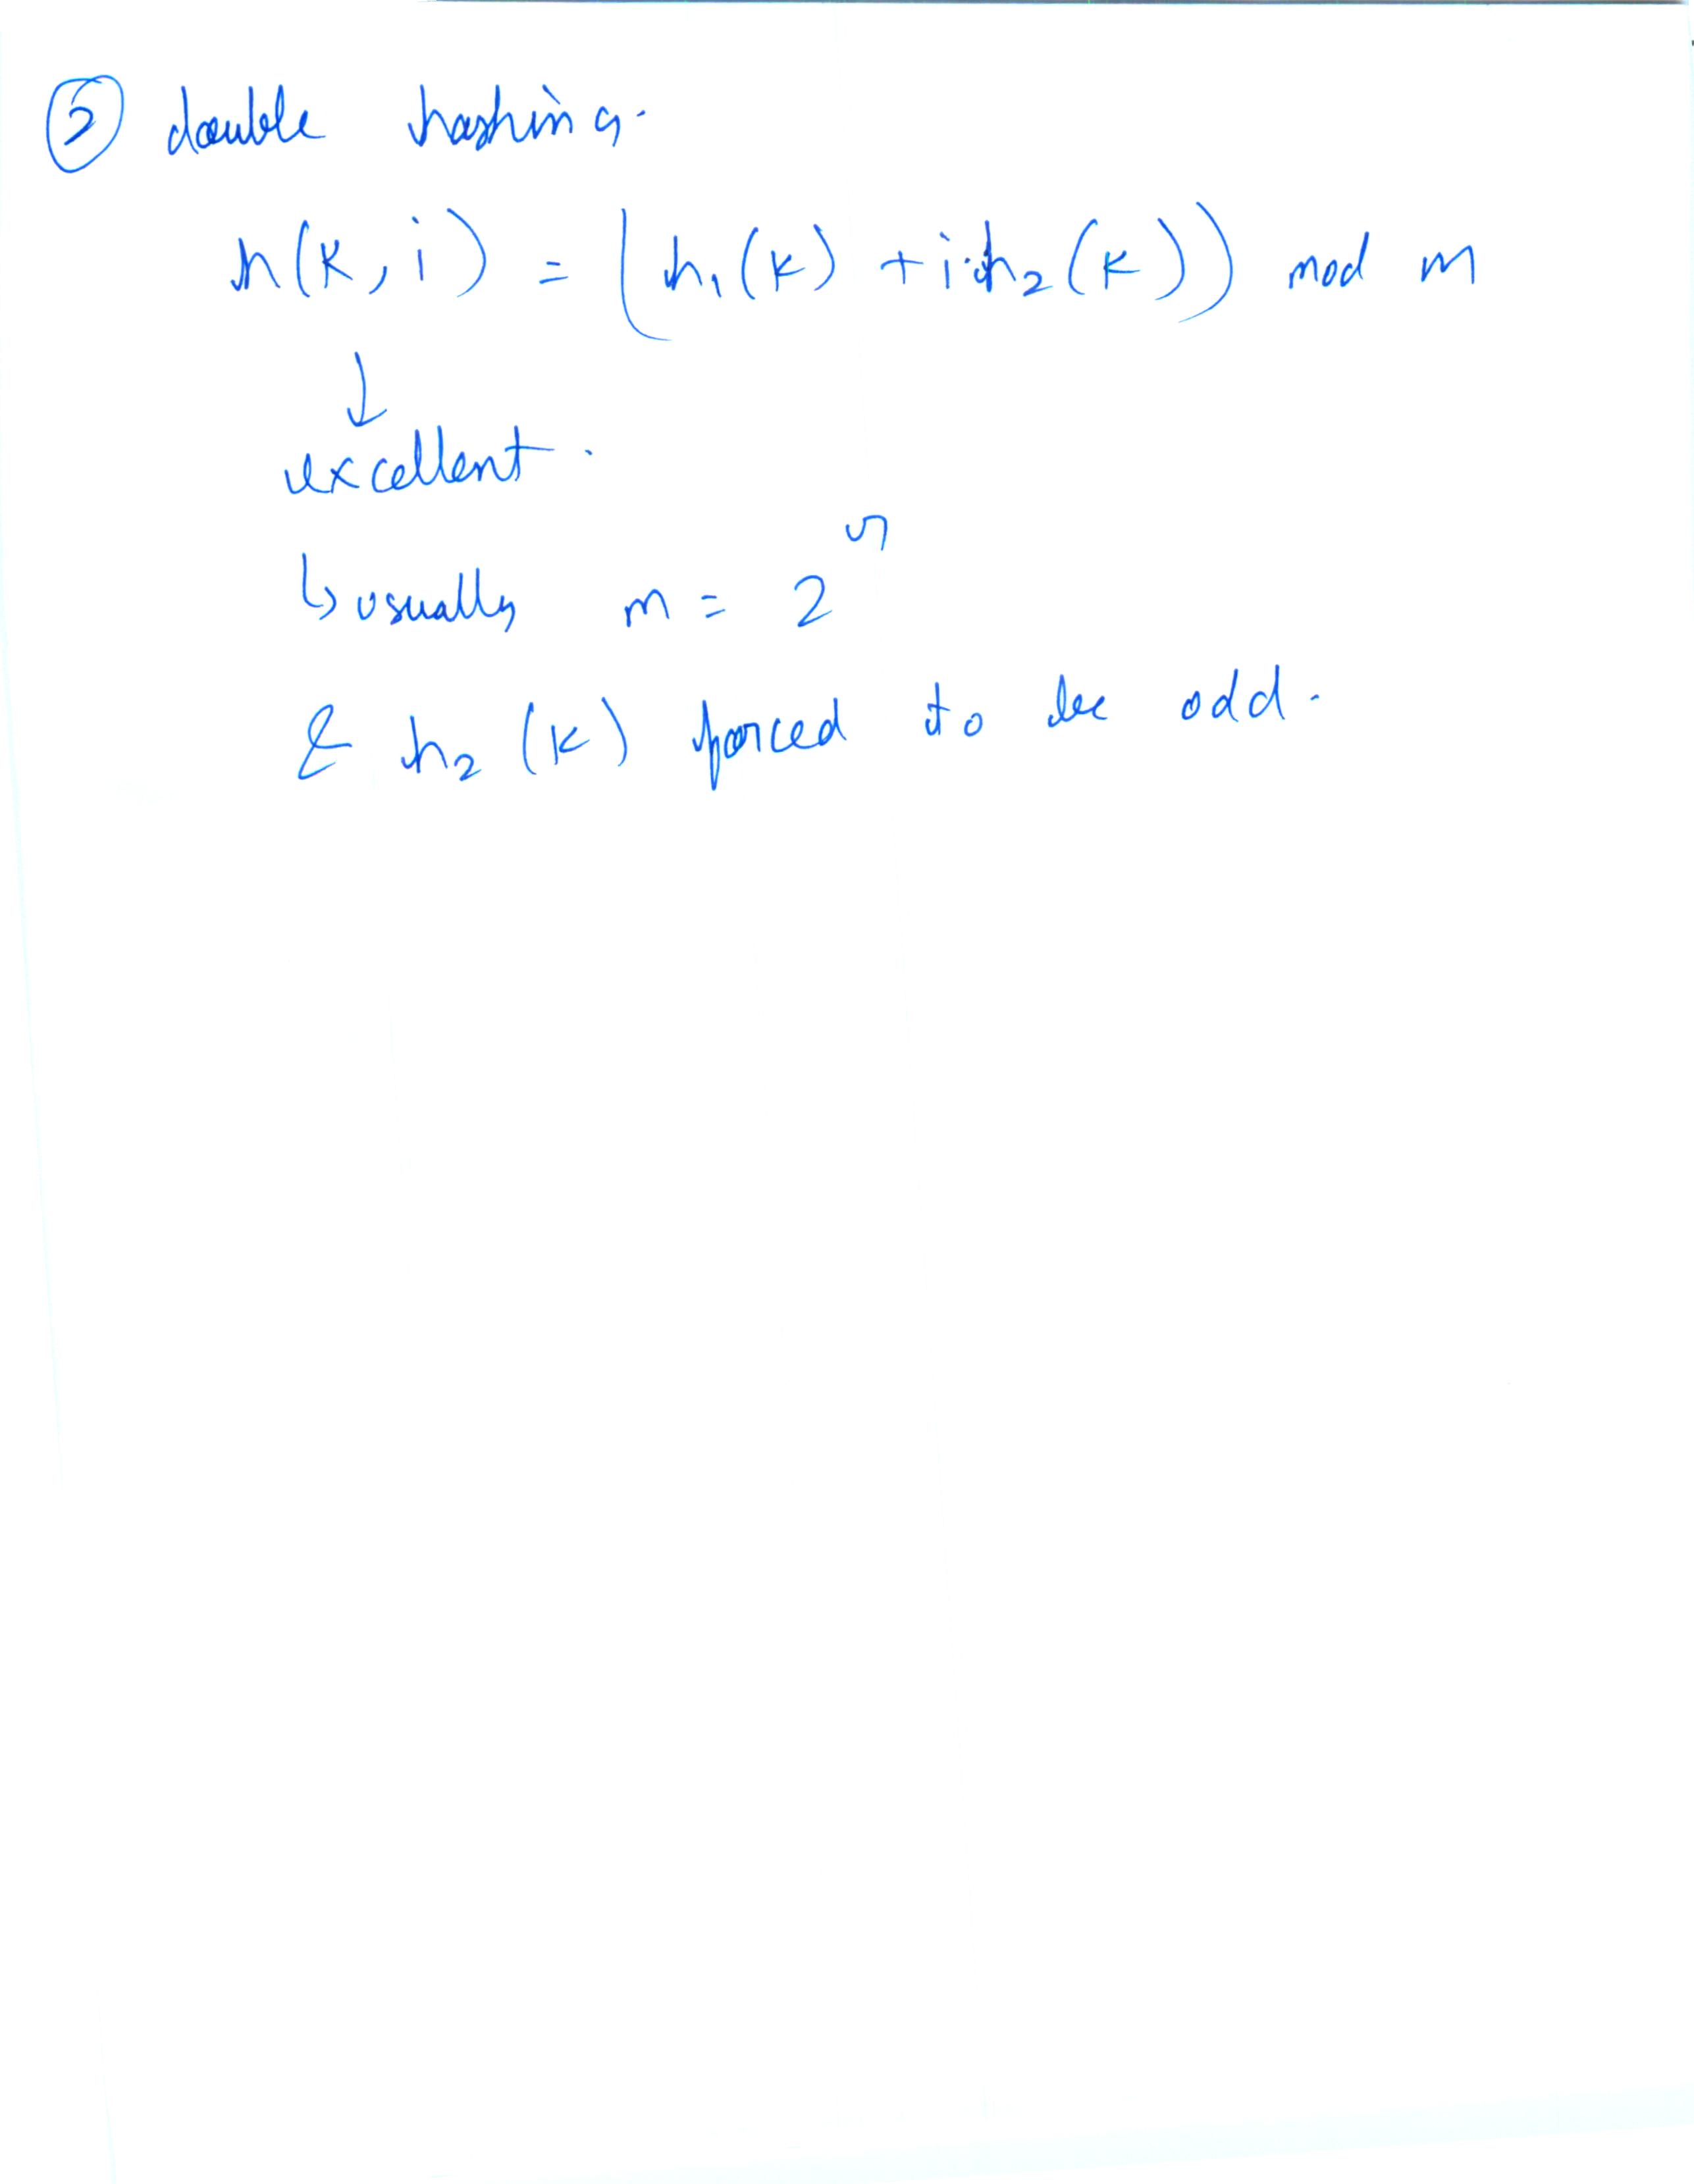 ② double hashing.
h(k, i) = (h₁(k) + i·h₂(k)) mod m
↓
excellent.
↳ usually m = 2^r
& h₂(k) forced to be odd.